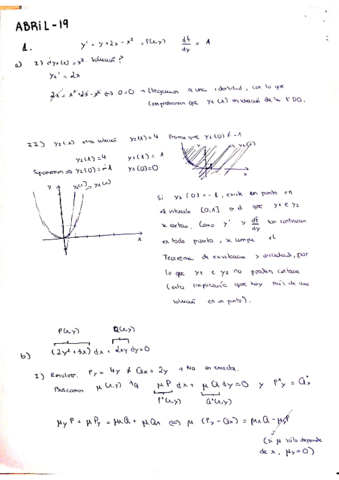 ABRIL-19
1. y' = y + 2x - x² = f(x,y) df/dy = 1
a) I) ¿y₂(x) = x² solución?
y₂' = 2x
2x = x² + 2x - x² ⇔ 0 = 0 → Llegamos a una identidad, con lo que
comprobamos que y₂(x) es solución de la EDO.
II) y₂(x) otra solución y₂(1) = 4 Probar que y₂(0) ≠ -1
y₂(1) = 4 y₁(1) = 1
Suponemos y₂(0) = -1 y₁(0) = 0
Si y₂(0) = -1, existe un punto en
el intervalo [0,1] en el que y₁ e y₂
se cortan. Como y' y df/dy son continuas
en todo punto, se cumple el
Teorema de existencia y unicidad, por
lo que y₁ e y₂ no pueden cortarse
(esto implicaría que hay más de una
solución en un punto).
P(x,y) Q(x,y)
b) (2y² + 3x) dx + 2xy dy = 0
I) Resolver. Py = 4y ≠ Qx = 2y → No es exacta.
Buscamos μ(x,y) tq μP dx + μQ dy = 0 y P*y = Q*x
P*(x,y) Q*(x,y)
μy P + μ Py = μx Q + μ Qx ⇔ μ (Py - Qx) = μx Q - μy P
(si μ sólo depende
de x, μy = 0)